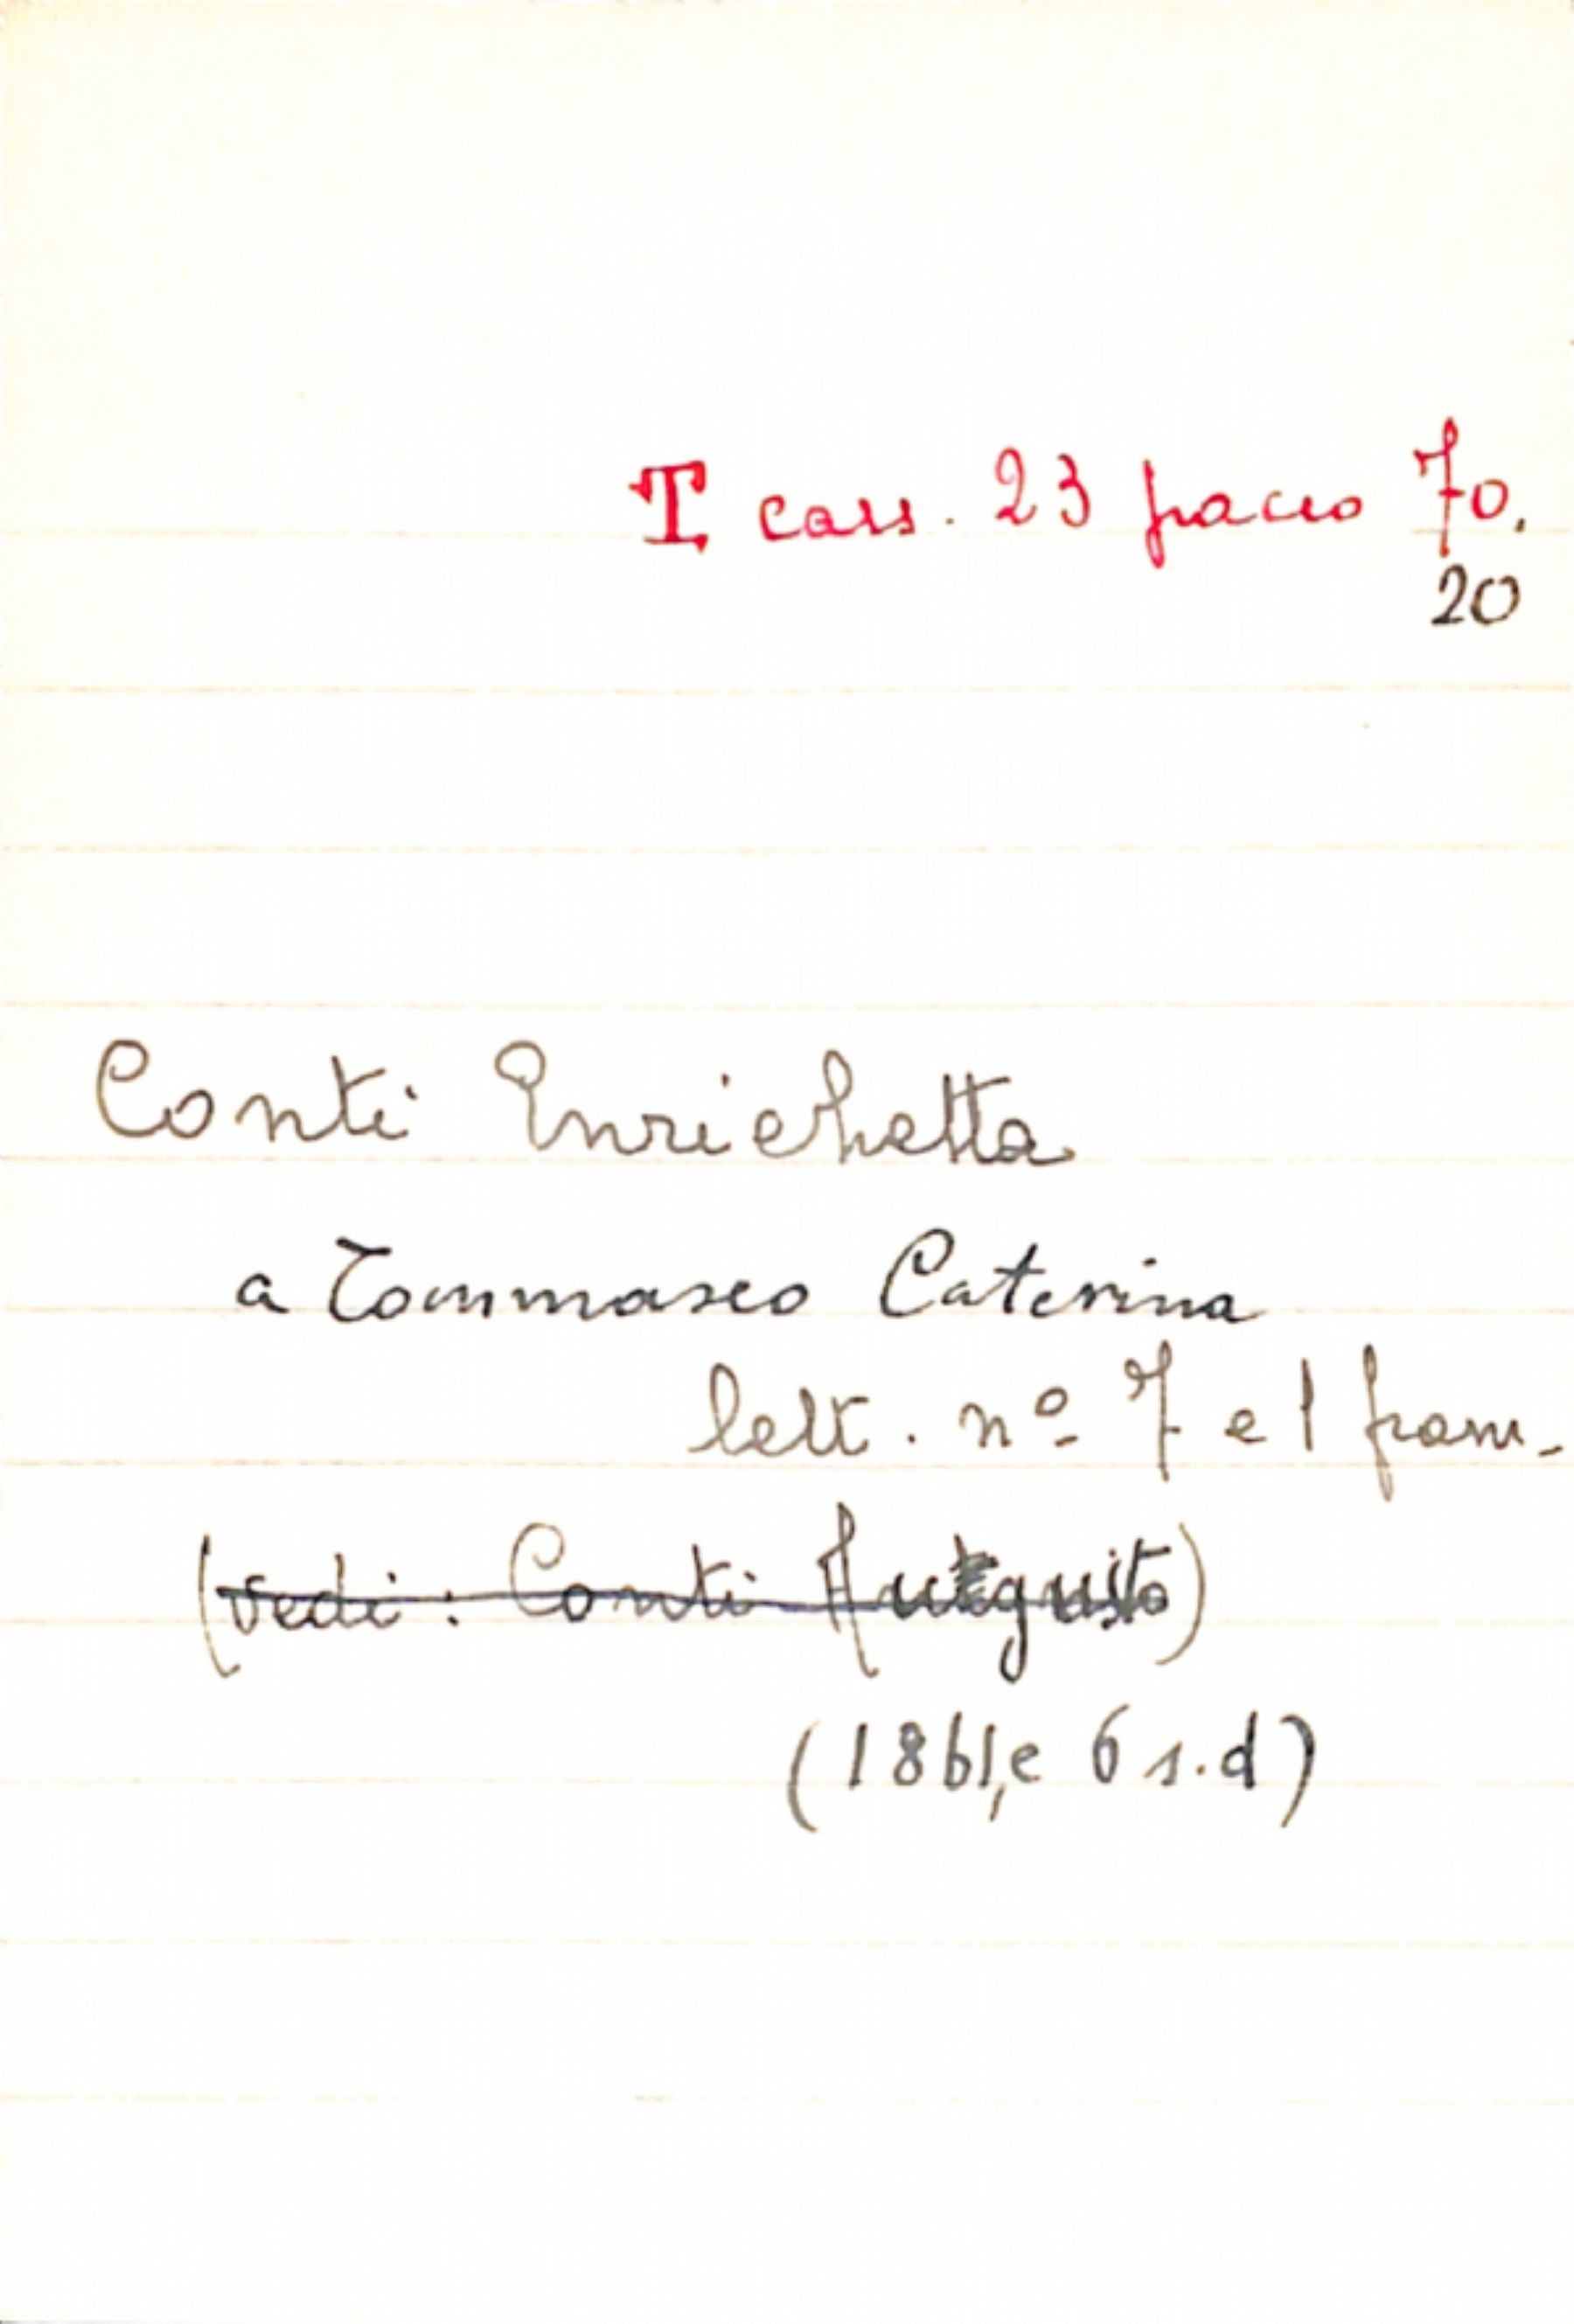 T cass. 23 pacco 70.
20
Conti Enrichetta
a Tommaseo Caterina
lett. nº 7 e 1 fram.
(vedi: Conti Augusto)
(1861, e 6 s.d)